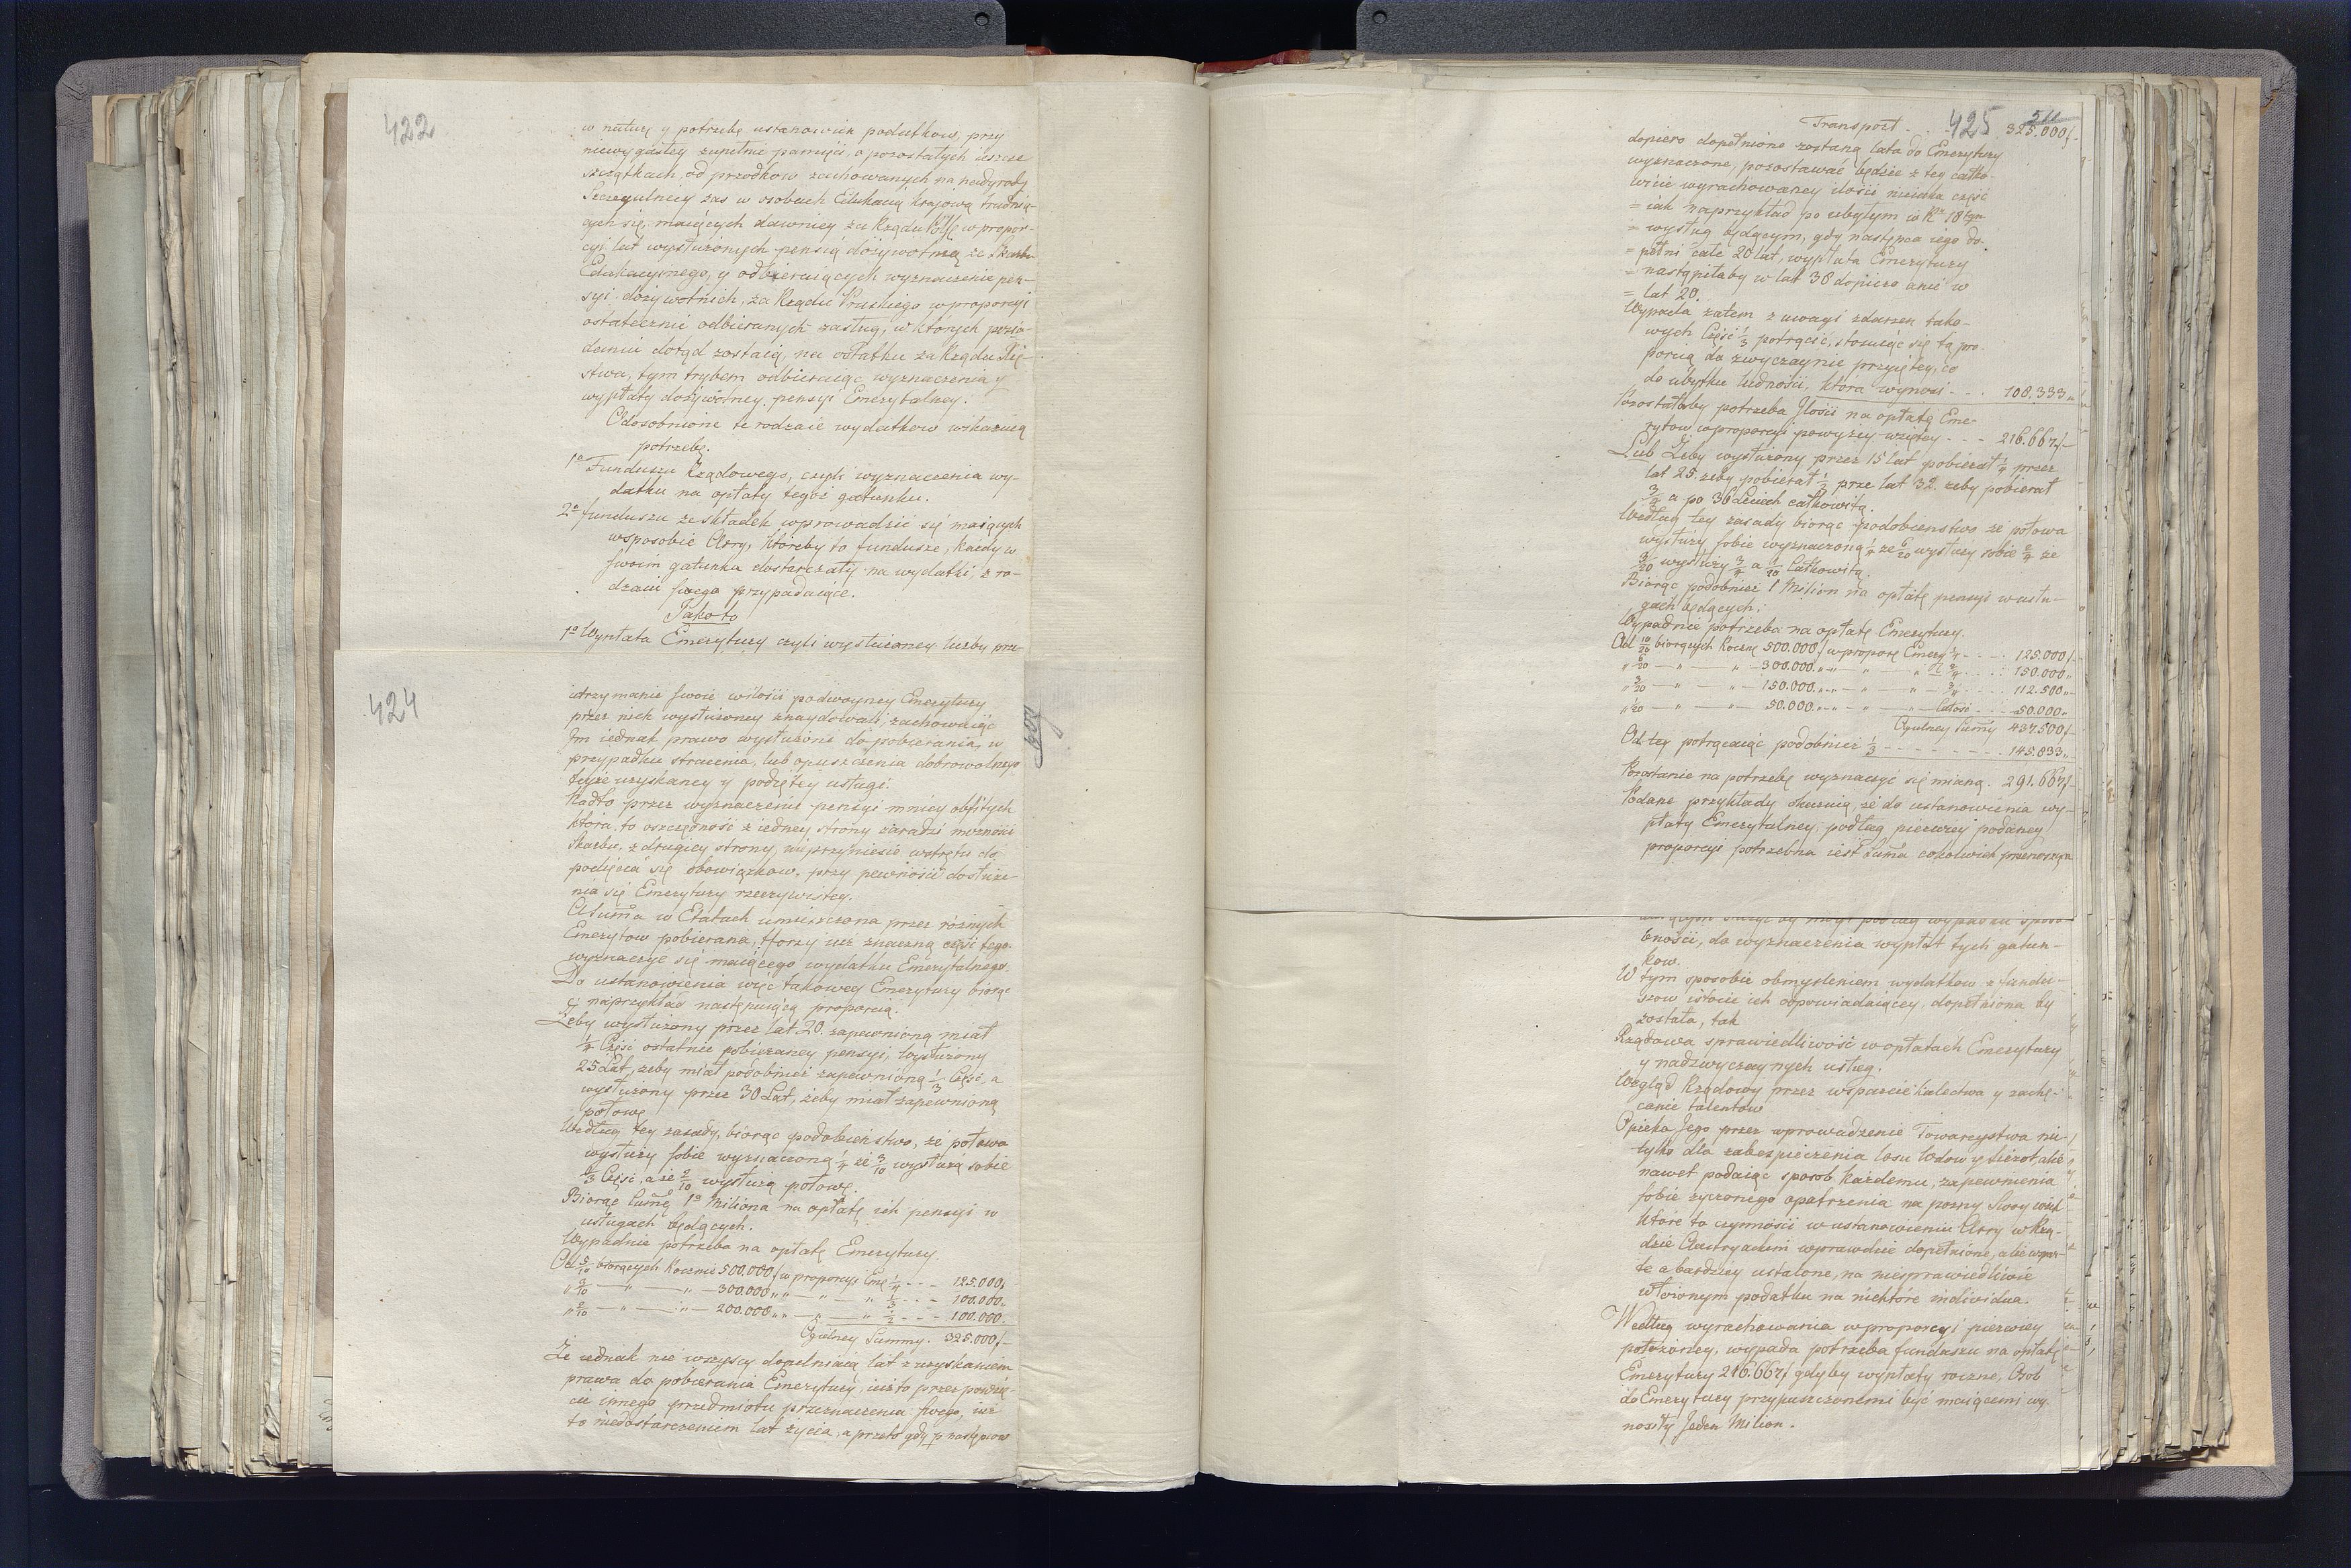 422
w naturę y potrzebę ustanowień podatkow, przy
niewygasłey zupełnie pamięci, o pozostałych ieszcze
szczątkach, od przodkow zachowanych na nadgrody
Szczegulniey zas w osobach Edukacią krajową trudnią-
cych się, maiących dawniey za Rządu w propor-
cyi lat wysłużonych pensią dożywotnią ze Skarbu
Edukacyinego, y odbieraiących wyznaczenie pen-
syi dożywotnich, za Rządu Pruskiego w proporcyi
ostatecznie odbieranych zasług, w których posia-
daniu dotąd zostaią, na ostatku za Rządu Xię-
stwa, tym trybem odbieraiąc wyznaczenia y
wypłaty dożywotniey pensyi Emerytalney.
Odosobnione te rodzaie wydatkow wskazuią
potrzebę.
1º Funduszu Rządowego, czyli wyznaczenia wy-
datku na opłaty tegoż gatunku.
2º funduszu ze składek wprowadzić się maiących
w sposobie Assy, któreby to fundusze, każdy w
swoim gatunku dostarczały na wydatki, z ro-
dzaiu swego przypadaiące.
Jako to
1º Wypłata Emerytury czyli wysłużoney liczby prze-
424
utrzymanie swoie w ilości podwoyney Emerytury
przez nich wysłużoney znaydowali, zachowuiąc
Im iednak prawo wysłużone do pobierania, w
przypadku stracenia, lub opuszczenia dobrowolnego
teyże uzyskaney y podiętey usługi.
Nadto przez wyznaczenie pensyi mniey obfitych
która to oszczędność z iedney strony zaradzi możności
Skarbu, z drugiey strony, nie przyniesie wstrętu do
podięcia się obowiązkow, przy pewności dosłuże-
nia się Emerytury rzeczywistey.
A Summa w Etatach umieszczona przez różnych
Emerytow pobierana, tworzy iuż znaczną część tego
wyznaczyć się maiącego wydatku Emerytalnego.
Do ustanowienia więc takowey Emerytury biorąc
naprzykład następuiącą proporcią.
Żeby wysłużony przez lat 20. zapewnioną miał
1/4 Część ostatnie pobieraney pensyi, wysłużony
25 Lat, żeby miał podobnież zapewnioną 1/3 Część, a
wysłużony przez 30 Lat, żeby miał zapewnioną
połowę
Według tey zasady, biorąc podobieństwo, że połowa
wysłuży sobie wyznaczoną 1/4 że 3/10 wysłużą sobie
1/3 Część, a że 2/10 wysłużą połowę.
Biorąc Summę 1º Miliona na opłatę ich pensyi w
usługach będących.
Wypadnie potrzeba na opłatę Emerytury.
Od 5/10 biorących Rocznie 500.000 / w proporcyi Eme 1/4 - - - 125.000 /
" 3/10 — " — " — 300.000 " " — " — " 1/3 - - - 100.000 "
" 2/10 — " — " — 200.000 " " — " — " 1/2 - - - 100.000 "
Ogulney Summy. 325.000 /
Że iednak nie wszyscy dopełniaią lat z uzyskaniem
prawa do pobierania Emerytury, iuż to przez powzię-
cie innego przedmiotu przeznaczenia swego, iuż
to niedostarczeniem lat życia, a przeto gdy p następcow
425
511
Transport - - 325.000 /
dopiero dopełnione zostaną lata do Emerytury
wyznaczone, pozostawać będzie z tey całko-
wicie wyrachowaney ilości nieiaka część
= iak naprzykład po ubyłym w Ru 18tym
= wysług będącym, gdy następca iego do-
= pełni całe 20 lat, wypłata Emerytury
= nastąpiłaby w lat 38 dopiero anie w
= lat 20.
Wypada zatem z uwagi zdarzeń tako-
wych Część 1/3 potrącić, stosuiąc się tą pro-
porcią do zwyczaynie przyiętey, co
do ubytku ludności, która wynosi - - - 108.333 "
Pozostałaby potrzeba Ilości na opłatę Eme-
rytow w proporcyi powyżey wziętey - - - 216.667 /
Lub Żeby wysłużony przez 15 lat pobierał 1/4 przez
lat 25. żeby pobierał 1/2 prze lat 32. żeby pobierał
3/4 a po 36 Leciech całkowitą.
Według tey zasady biorąc podobienstwo że połowa
wysłuży sobie wyznaczoną 1/4 że 6/20 wysłuży sobie 2/4 że
3/20 wysłuży 3/4 a 1/20 Całkowitą.
Biorąc podobnież 1 Milion na opłatę pensyi w usłu-
gach będących.
Wypadnie potrzeba na opłatę Emerytury.
Od 10/20 biorących Roczne 500.000 / w proporc Emery 1/4 - - - 125.000 /
" 6/20 — " — " — 300.000 " " — " — " 2/4 - - - 150.000 "
" 3/20 — " — " — 150.000 " " — " — " 3/4 - - - 112.500 "
" 1/20 — " — " — 50.000 " " — " — " Całość - - - 50.000 "
Ogulney Summy 437.500 /
Od tey potrącaiąc podobnież 1/3 - - - - - - - 145.833 "
Pozostanie na potrzebę wyznaczyć się mianą. 291.667 /
Podane przykłady okazuią, że do ustanowienia wy-
płaty Emerytalney, podług pierwszey podaney
proporcyi potrzebna iest Summa cokolwiek przenosząca
bności, do wyznaczenia wypłat tych gatun-
kow.
W tym sposobie obmyśleniem wydatkow z fundu-
szow istocie ich odpowiadaiącey, dopełniona by
została, tak
Rządowa sprawiedliwość w opłatach Emerytury
y nadzwyczaynych usług.
Wzgląd Rządowy przez wsparcie kalectwa y zachę-
canie talentow
Opieka Jego przez wprowadzenie Towarzystwa nie-
tylko dla zabezpieczenia losu Wdow y Sierot, ale
nawet podaiąc sposob Każdemu, zapewnienia
sobie życzonego opatrzenia na pozny Swoy wiek
które to czynności w ustanowieniu Assy w Rzą-
dzie Austryackim wprawdzie dopełnione, ale wspar-
te a bardziey ustalone, na niesprawiedliwie
włożonym podatku na niektóre individua.
Według wyrachowania w proporcyi pierwey
położoney, wypada potrzeba funduszu na opłatę
Emerytury 216.667 / gdyby wypłaty roczne, Osob
do Emerytury przypuszczonemi być maiącemi wy-
nosiły Jeden Milion.